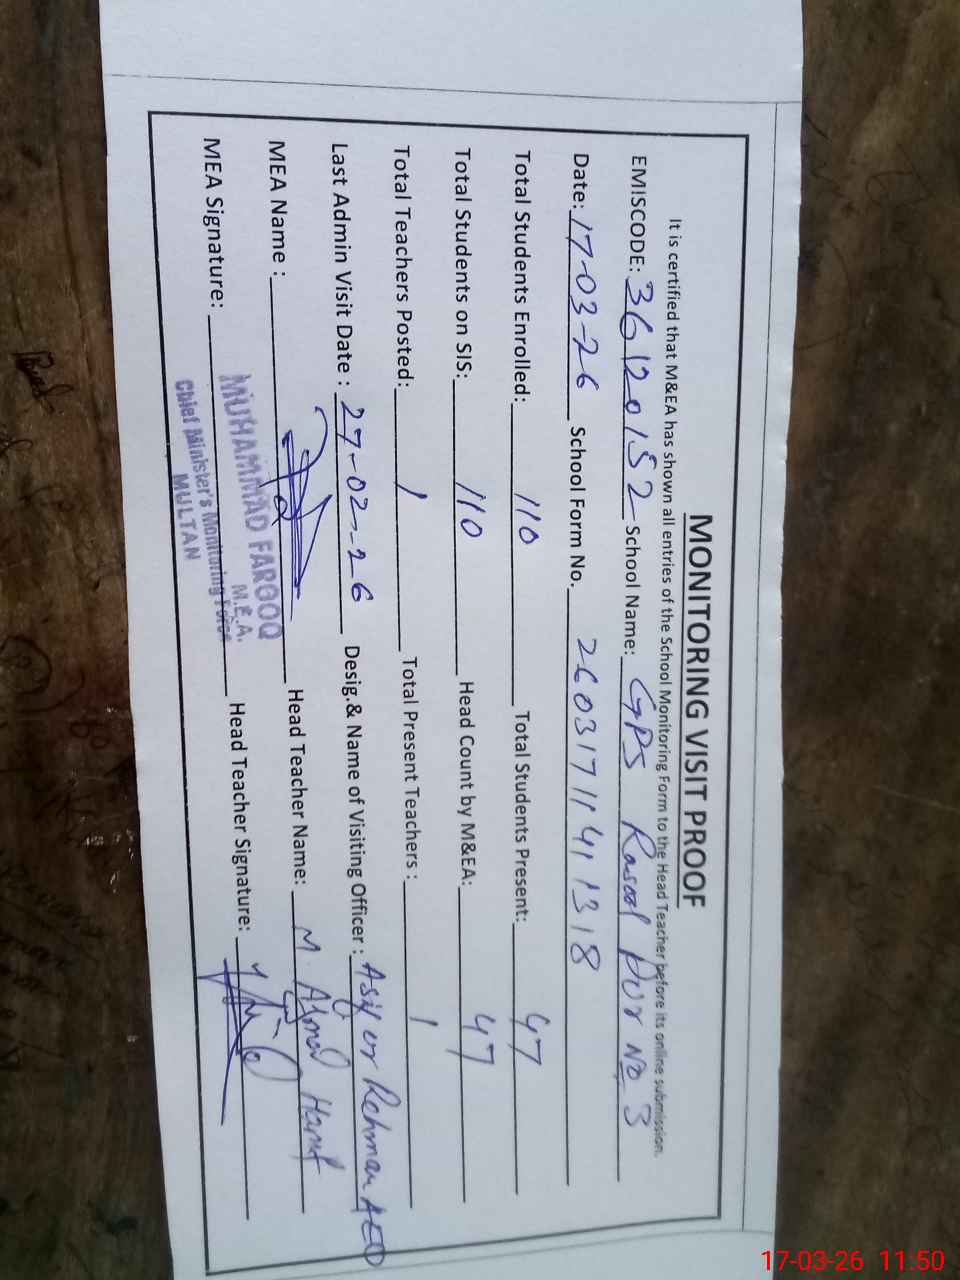 MONITORING VISIT PROOF
It is certified that M&EA has shown all entries of the School Monitoring Form to the Head Teacher before its online submission.
EMISCODE: 36120152 School Name: GPS Rasool Pur No 3
Date: 17-03-26 School Form No. 26031711411318
Total Students Enrolled: 110 Total Students Present: 47
Total Students on SIS: 110 Head Count by M&EA: 47
Total Teachers Posted: 1 Total Present Teachers : 1
Last Admin Visit Date : 27-02-26 Desig.& Name of Visiting Officer : Asif ur Rehman AEO
MEA Name : Head Teacher Name: M. Ahmed Hanif
MEA Signature: Head Teacher Signature:
MUHAMMAD FAROOQ
M.E.A.
Chief Minister's Monitoring Force
MULTAN
17-03-26 11:50